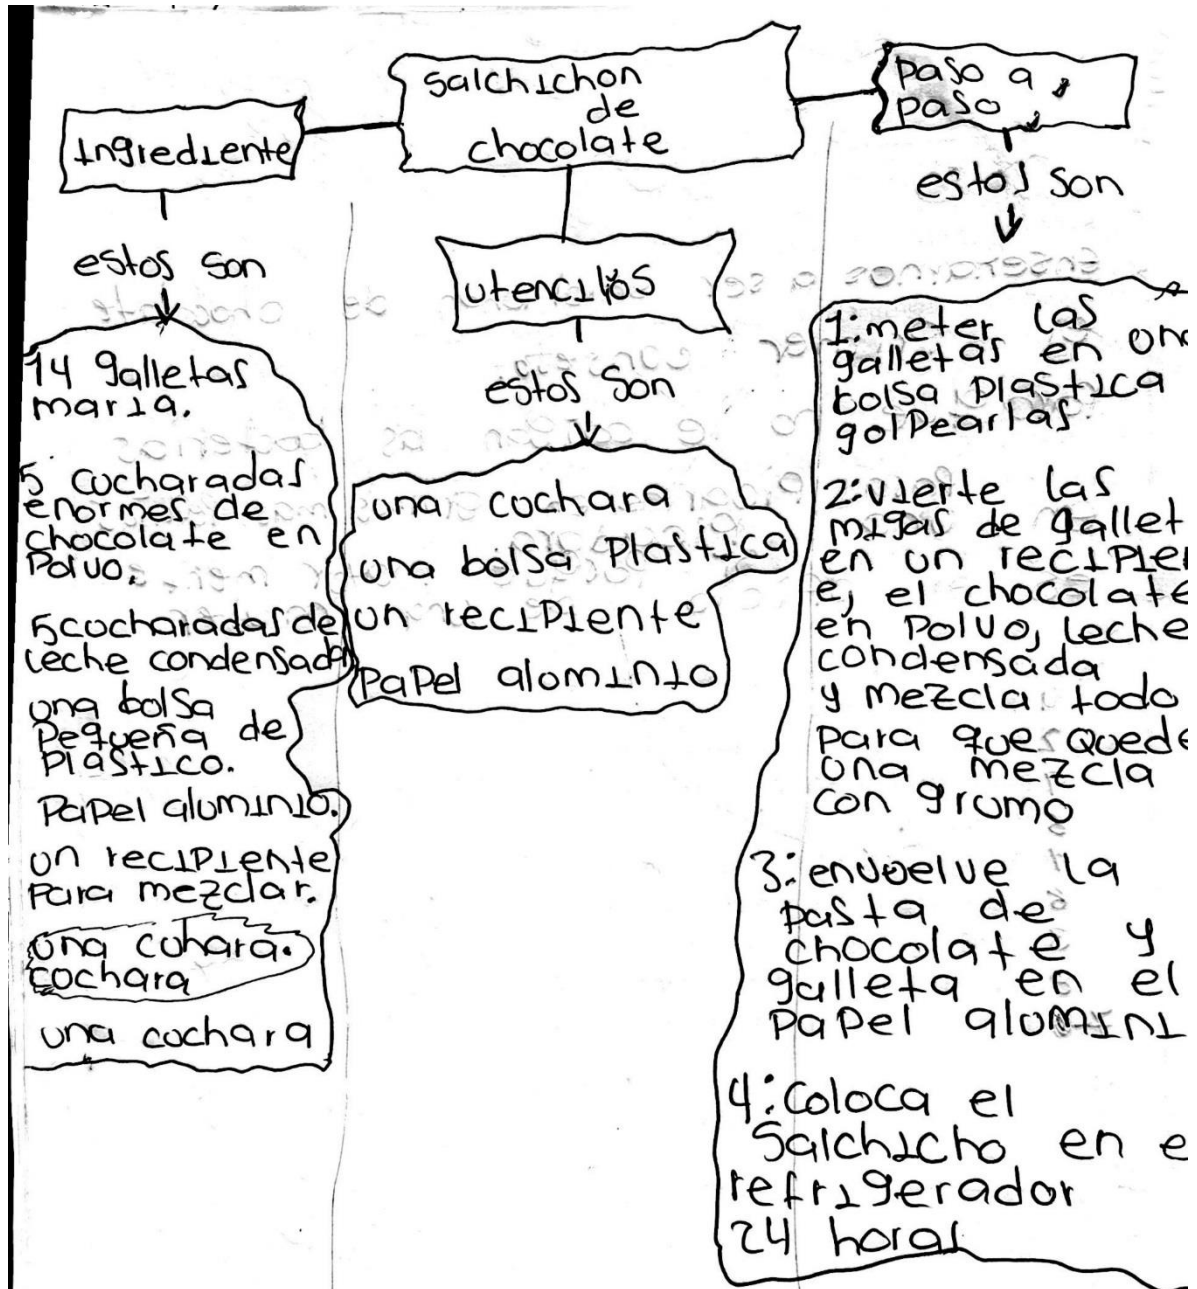 Salchichon
de
chocolate
Ingrediente
estos son
14 galletas
maria.
5 cucharadas
enormes de
chocolate en
Polvo.
5 cucharadas de
leche condensada
una bolsa
Pequeña de
Plastico.
Papel aluminio.
un recipiente
Para mezclar.
una cuhara.
cochara
una cuchara
utencilios
estos son
una cuchara
una bolsa Plastica
un recipiente
Papel aluminio
Paso a
paso
estos son
1: meter las
galletas en una
bolsa Plastica
golpearlas
2: vierte las
migas de gallet
en un recipien
e, el chocolate
en Polvo, leche
condensada
y mezcla todo
para que quede
una mezcla
con grumo
3: envuelve la
pasta de
chocolate y
galleta en el
Papel alumini
4: Coloca el
Salchicho en e
refrigerador
24 horas